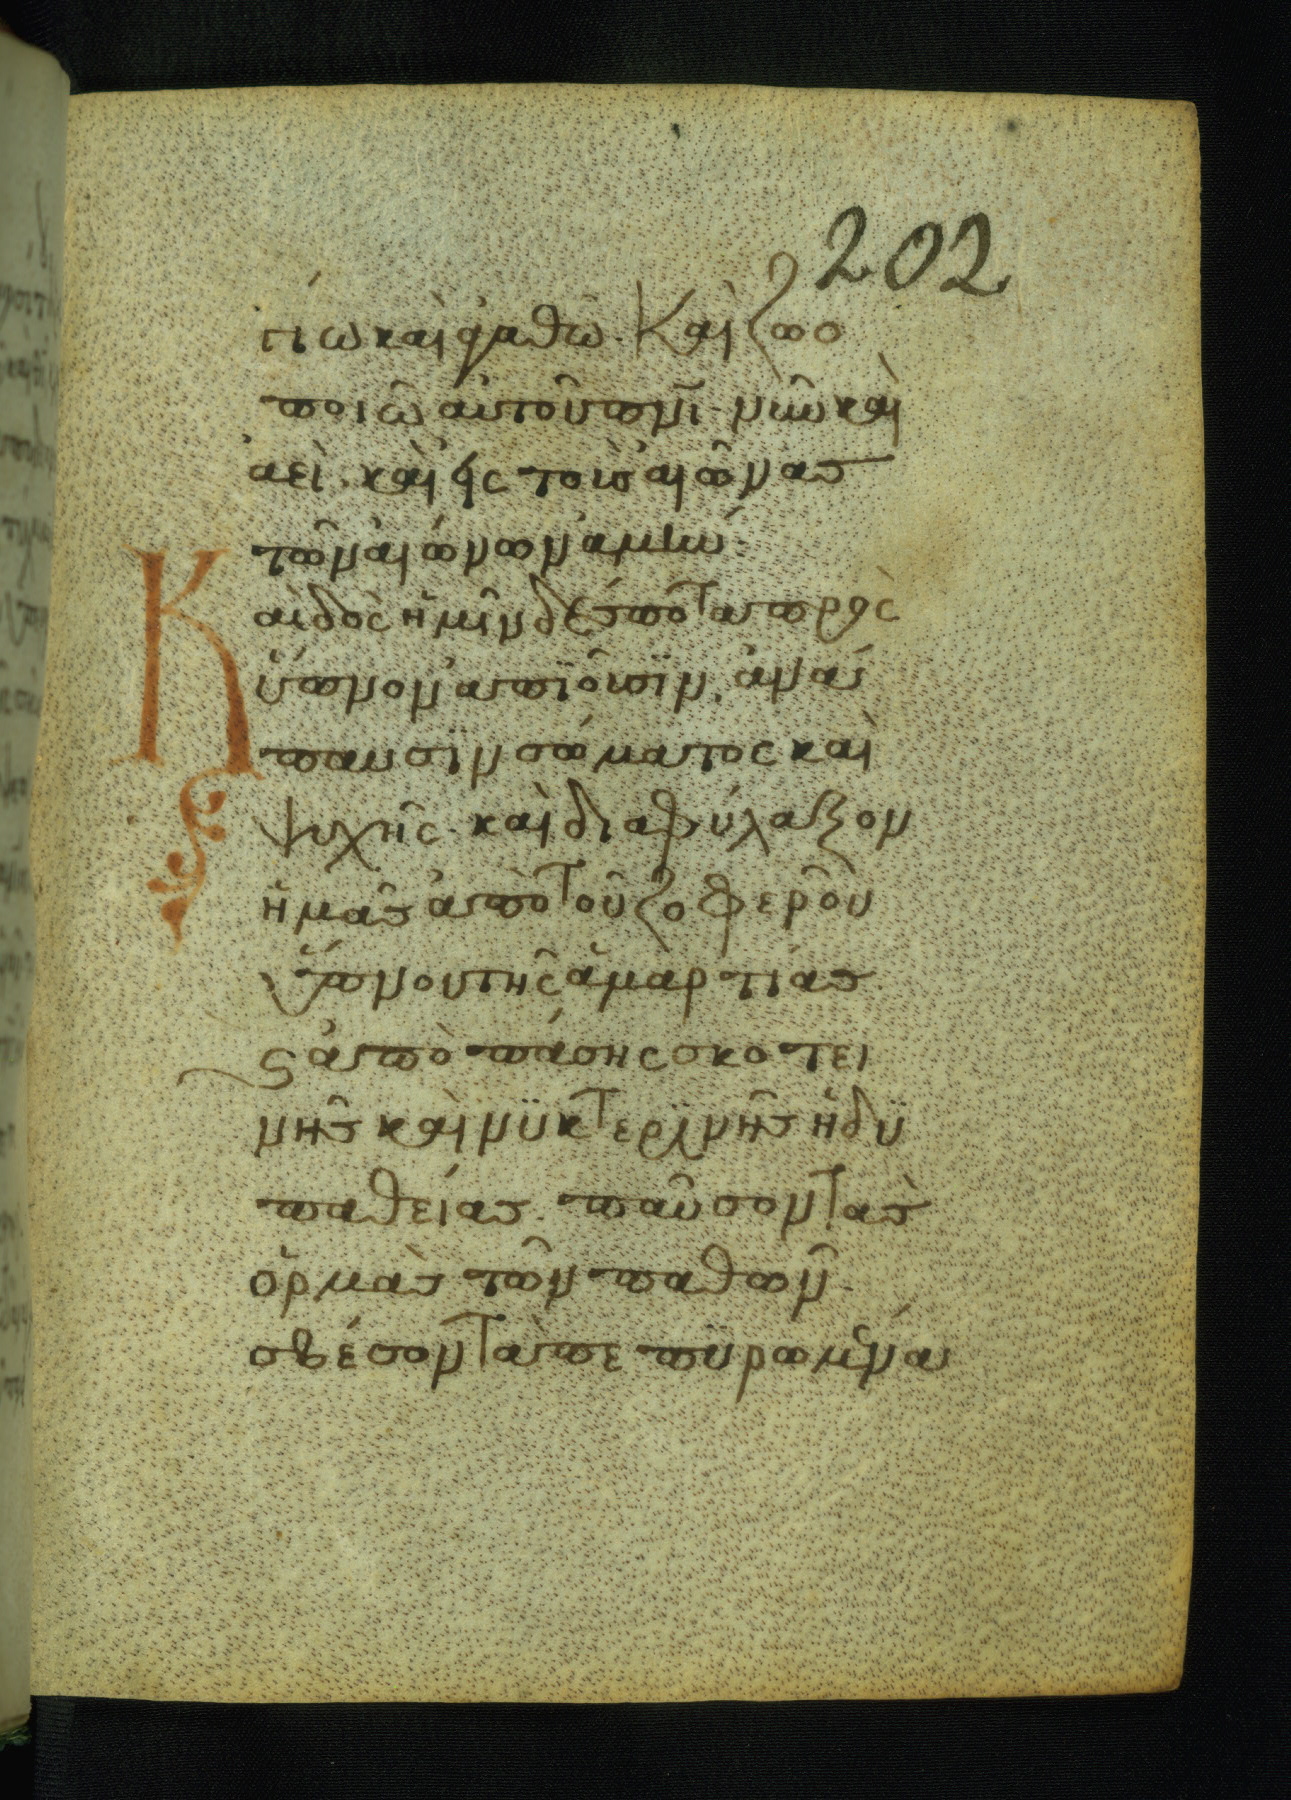 202
τίω καὶ ἀγαθῶ. Καὶ ζωο
ποιῶ αὐτοῦ πνῖ· νῦν καὶ
ἀεὶ. καὶ εἰς τοὺς αἰῶνας
τῶν αἰώνων ἀμήν:
Καὶ δὸς ἡμῖν δέσποτα πρὸς
ὕπνον ἀπϊοῦσϊν. ἀνά
παυσϊν σώματος καὶ
ψυχῆς. καὶ διαφύλαξον
ἡμᾶς ἀπὸ τοῦ ζοφεροῦ
ὕπνου τῆς ἁμαρτίας.
ϛ ἀπὸ πάσης σκοτει
νῆς καὶ νϋκτερϊνῆς ἡδϋ
παθείας. παῦσον τὰς
ὁρμὰς τῶν παθῶν.
σβέσον τὰ πεπϋρωμένα